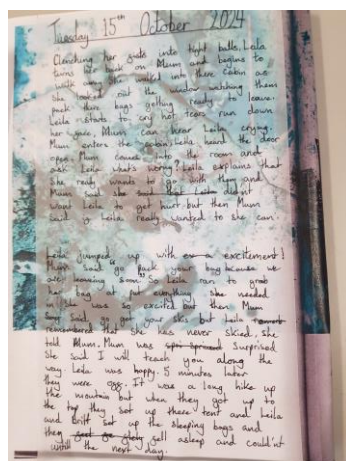 Tuesday 15th October 2024
Clenching her fists into tight balls. Leila
turns her back on Mum and begins to
walk away. She walked into there cabin as
she looked out the window watching them
pack there bags getting ready to leave.
Leila starts to cry hot tears run down
her face, Mum can hear Leila crying.
Mum enters the Leila heard the door
open. Mum comes into the room and
ask Leila what's worng? Leila explains that
she really wants to go with they and
Mum said she said that Leila didn't
want Leila to get hurt but then Mum
said if Leila really wanted to she can.
Leila jumped up with excitement!
Mum said go pack your bag because we
are leaving soon. So Leila ran to grab
her bag and put everything she needed
in. She was so excited but then Mum
said go get your skis but Leila
remembered that she has never skied, she
told Mum. Mum was surprised
She said I will teach you along the
way. Leila was happy. 5 minutes later
they were off. It was a long hike up
the moutain but when they got up to
the top they set up there tent and Leila
and Britt set up the sleeping bags and
they fell asleep and could'nt
until the next day.